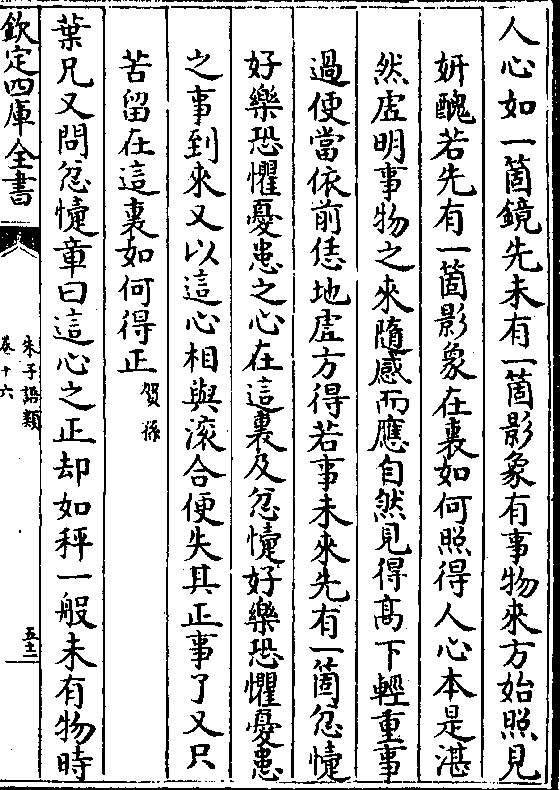 人心如一箇鏡先未有一箇影象有事物來方始照見
妍醜若先有一箇影象在裏如何照得人心本是湛
然虚明事物之來隨感而應自然見得髙下輕重事
過便當依前恁地虚方得若事未來先有一箇忿懥
好樂恐懼憂患之心在這裏及忿懥好樂恐懼憂患
之事到來又以這心相與滚合便失其正事了又只
苦留在這裏如何得正賀孫
葉兄又問忿懥章曰這心之正却如秤一般未有物時
欽定四庫全書
朱子語類
卷十六
五十三